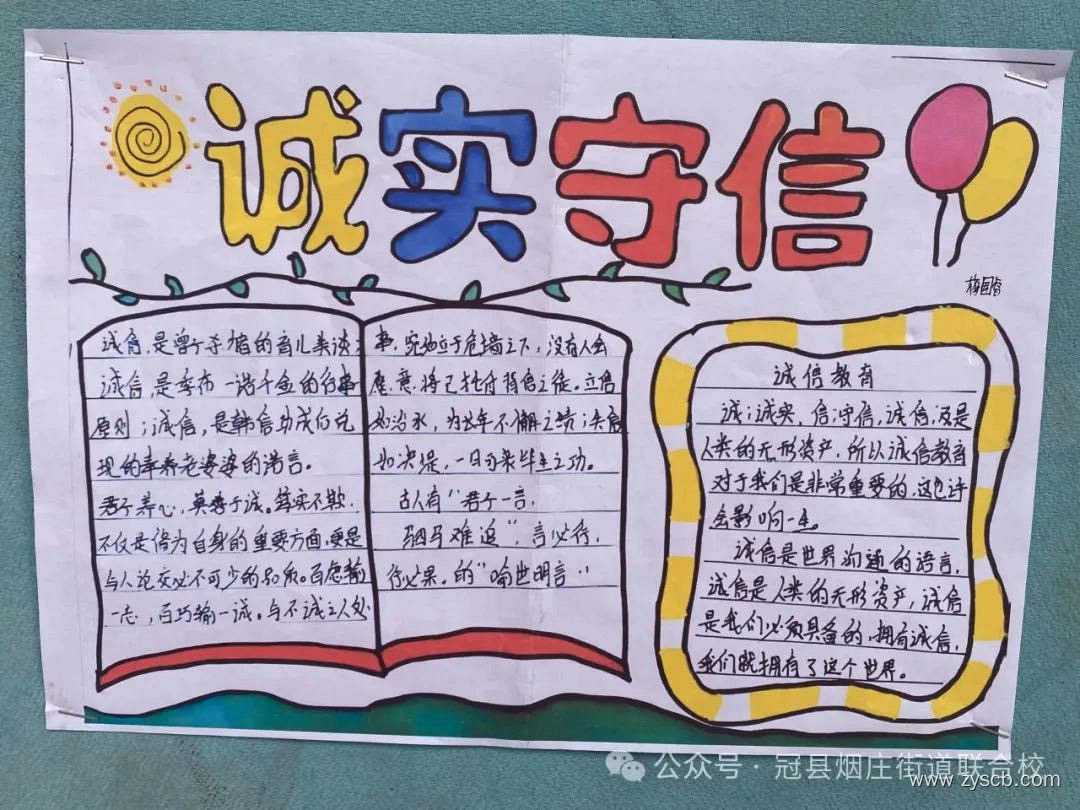 诚实守信
诚信,是曾子杀猪的育儿美谈;
诚信,是季布一诺千金的行事
原则;诚信,是韩信功成名兑
现的奉养老婆婆的诺言。
君子养心,莫善于诚。笃实不欺,
不仅是修为自身的重要方面,更是
与人论交必不可少的品质。百虑输
一忘,百巧输一诚。与不诚之人处
事,宛如立于危墙之下,没有人会
愿意将己托付背信之徒。立信
如治水,为长年不懈之绩;失信
如决堤,一日可弃毕生之功。
古人有“君子一言,
驷马难追”,言必行,
行必果。的“喻世明言”
诚信教育
诚:诚实,信:守信,诚信,及是
人类的无形资产,所以诚信教育
对于我们是非常重要的,这也许
会影响一生。
诚信是世界沟通的语言,
诚信是人类的无形资产,诚信
是我们必须具备的,拥有诚信,
我们就拥有了这个世界。
公众号·冠县烟庄街道联合校
www.zyscb.com